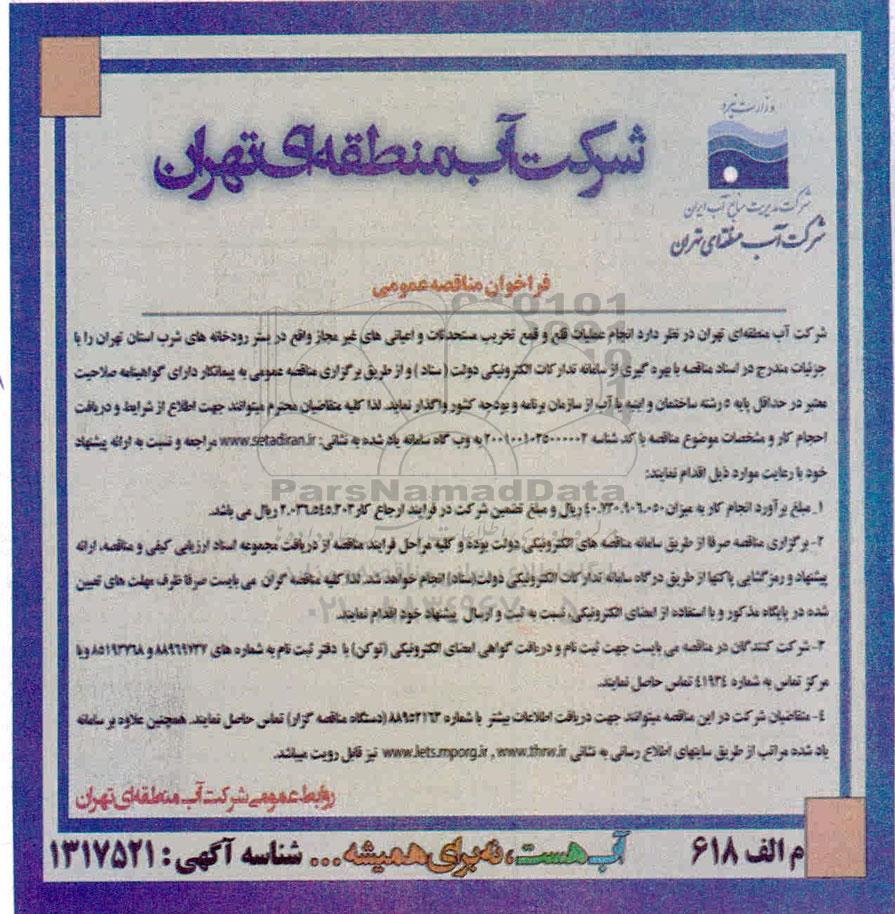 وزارت نیرو
شرکت مدیریت منابع آب ایران
شرکت آب منطقه‌ای تهران
شرکت آب منطقه‌ای تهران
فراخوان مناقصه عمومی
شرکت آب منطقه‌ای تهران در نظر دارد انجام عملیات قلع و قمع تخریب مستحدثات و اعیانی های غیر مجاز واقع در بستر رودخانه های شرب استان تهران را با
جزئیات مندرج در اسناد مناقصه با بهره گیری از سامانه تدارکات الکترونیکی دولت ( ستاد ) و از طریق برگزاری مناقصه عمومی به پیمانکار دارای گواهینامه صلاحیت
معتبر در حداقل پایه ۵ رشته ساختمان و ابنیه یا آب از سازمان برنامه و بودجه کشور واگذار نماید. لذا کلیه متقاضیان محترم میتوانند جهت اطلاع از شرایط و دریافت
احجام کار و مشخصات موضوع مناقصه با کد شناسه ۲۰۰۱۰۰۱۰۲۵۰۰۰۰۰۲ به وب گاه سامانه یاد شده به نشانی: www.setadiran.ir مراجعه و نسبت به ارائه پیشنهاد
خود با رعایت موارد ذیل اقدام نمایند:
۱_ مبلغ برآورد انجام کار به میزان ۴۰،۷۳۰،۹۰۶،۰۵۰ ریال و مبلغ تضمین شرکت در فرایند ارجاع کار ۲،۰۳۶،۵۴۵،۳۰۳ ریال می باشد.
۲- برگزاری مناقصه صرفا از طریق سامانه مناقصه های الکترونیکی دولت بوده و کلیه مراحل فرایند مناقصه از دریافت مجموعه اسناد ارزیابی کیفی و مناقصه، ارائه
پیشنهاد و رمزگشایی پاکتها از طریق درگاه سامانه تدارکات الکترونیکی دولت(ستاد) انجام خواهد شد. لذا کلیه مناقصه گران می بایست صرفا ظرف مهلت های تعیین
شده در پایگاه مذکور و با استفاده از امضای الکترونیکی نسبت به ثبت و ارسال پیشنهاد خود اقدام نمایند.
۳- شرکت کنندگان در مناقصه می بایست جهت ثبت نام و دریافت گواهی امضای الکترونیکی (توکن) با دفتر ثبت نام به شماره های ۸۸۹۶۹۷۳۷ و ۸۵۱۹۳۷۶۸ ویا
مرکز تماس به شماره ۴۱۹۳۴ تماس حاصل نمایند.
۴- متقاضیان شرکت در این مناقصه میتوانند جهت دریافت اطلاعات بیشتر با شماره ۸۸۹۵۲۱۶۳ (دستگاه مناقصه گزار) تماس حاصل نمایند. همچنین علاوه بر سامانه
یاد شده مراتب از طریق سایتهای اطلاع رسانی به نشانی www.iets.mporg.ir , www.thrw.ir نیز قابل رویت میباشد.
روابط عمومی شرکت آب منطقه‌ای تهران
م الف ۶۱۸
آب هست، نه برای همیشه...
شناسه آگهی : ۱۳۱۷۵۲۱
ParsNamadData